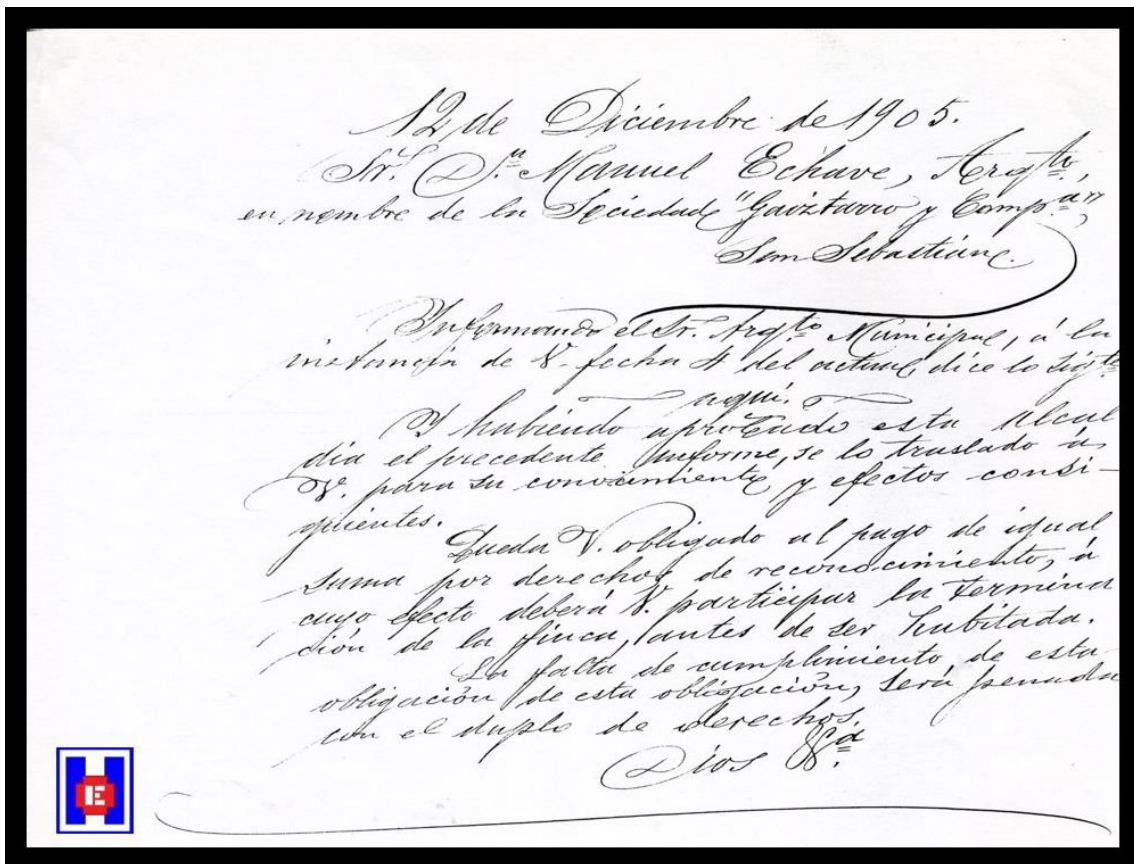 12 de Diciembre de 1905.
Sr. D.n Manuel Echave, Arqto.,
en nombre de la Sociedad "Gaiztarro y Comp.a"
San Sebastián.
Informando el Sr. Arqto. Municipal, á la
instancia de V. fecha 4 del actual, dice lo sigte.
aquí.
Y habiendo aprobado esta Alcal
dia el precedente informe, se lo traslado á
V. para su conocimiento y efectos consi-
guientes.
Queda V. obligado al pago de igual
suma por derechos de reconocimiento, á
cuyo efecto deberá V. participar la termina
ción de la finca, antes de ser habitada.
La falta de cumplimiento de esta
obligación de esta obligación, será penada
con el duplo de derechos.
Dios
H
E